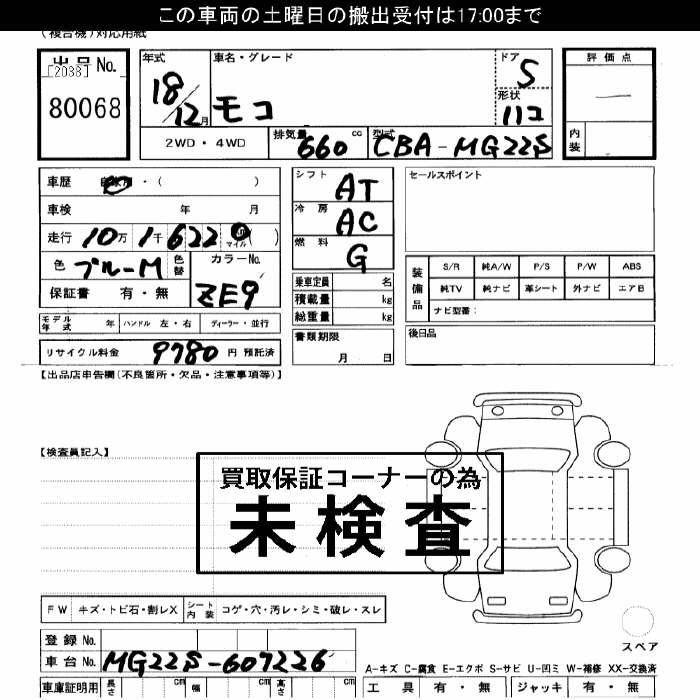 この車両の土曜日の搬出受付は17:00まで
(複合機)対応用紙
出品 No.
[2038]
80068
年式
18/12月
車名・グレード
モコ
ドア
5
形状
ハコ
評価点
—
内装
2WD・4WD
排気量
660 cc
型式
CBA-MG22S
車歴
自家用・( )
車検 年 月
走行 10万 1千 622 Km マイル ( )
色 ブルーM 色替
カラーNo.
ZE9
保証書 有・無
モデル年式 年 ハンドル 左・右 ディーラー・並行
リサイクル料金 9780 円 預託済
シフト AT
冷房 AC
燃料 G
乗車定員 名
積載量 kg
総重量 kg
書類期限
月 日
セールスポイント
装備品
S/R 純A/W P/S P/W ABS
純TV 純ナビ 革シート 外ナビ エアB
ナビ型番:
後日品
【出品店申告欄(不良箇所・欠品・注意事項等)】
【検査員記入】
買取保証コーナーの為
未検査
FW キズ・トビ石・割レX シート内装 コゲ・穴・汚レ・シミ・破レ・スレ
登録 No.
車台 No. MG22S-607226
車庫証明用 長さ cm 幅 cm 高さ cm
スペア
A-キズ C-腐食 E-エクボ S-サビ U-凹ミ W-補修 XX-交換済
工具 有・無 ジャッキ 有・無